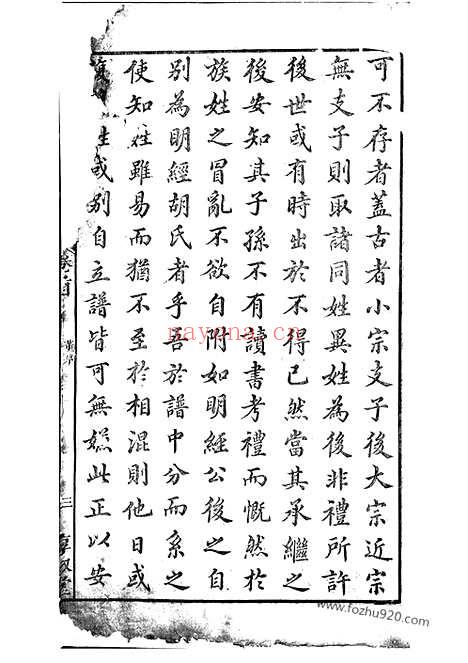 可不存者蓋古者小宗支子後大宗近宗
無支子則取諸同姓異姓為後非禮所許
後世或有時出於不得已然當其承繼之
後安知其子孫不有讀書考禮而慨然於
族姓之冒亂不欲自附如明經公後之自
別為明經胡氏者乎吾於譜中分而系之
使知姓雖易而猶不至於相混則他日或
復姓或別自立譜皆可無嫌此正以安
nayona.cn
www.fozhu920.com